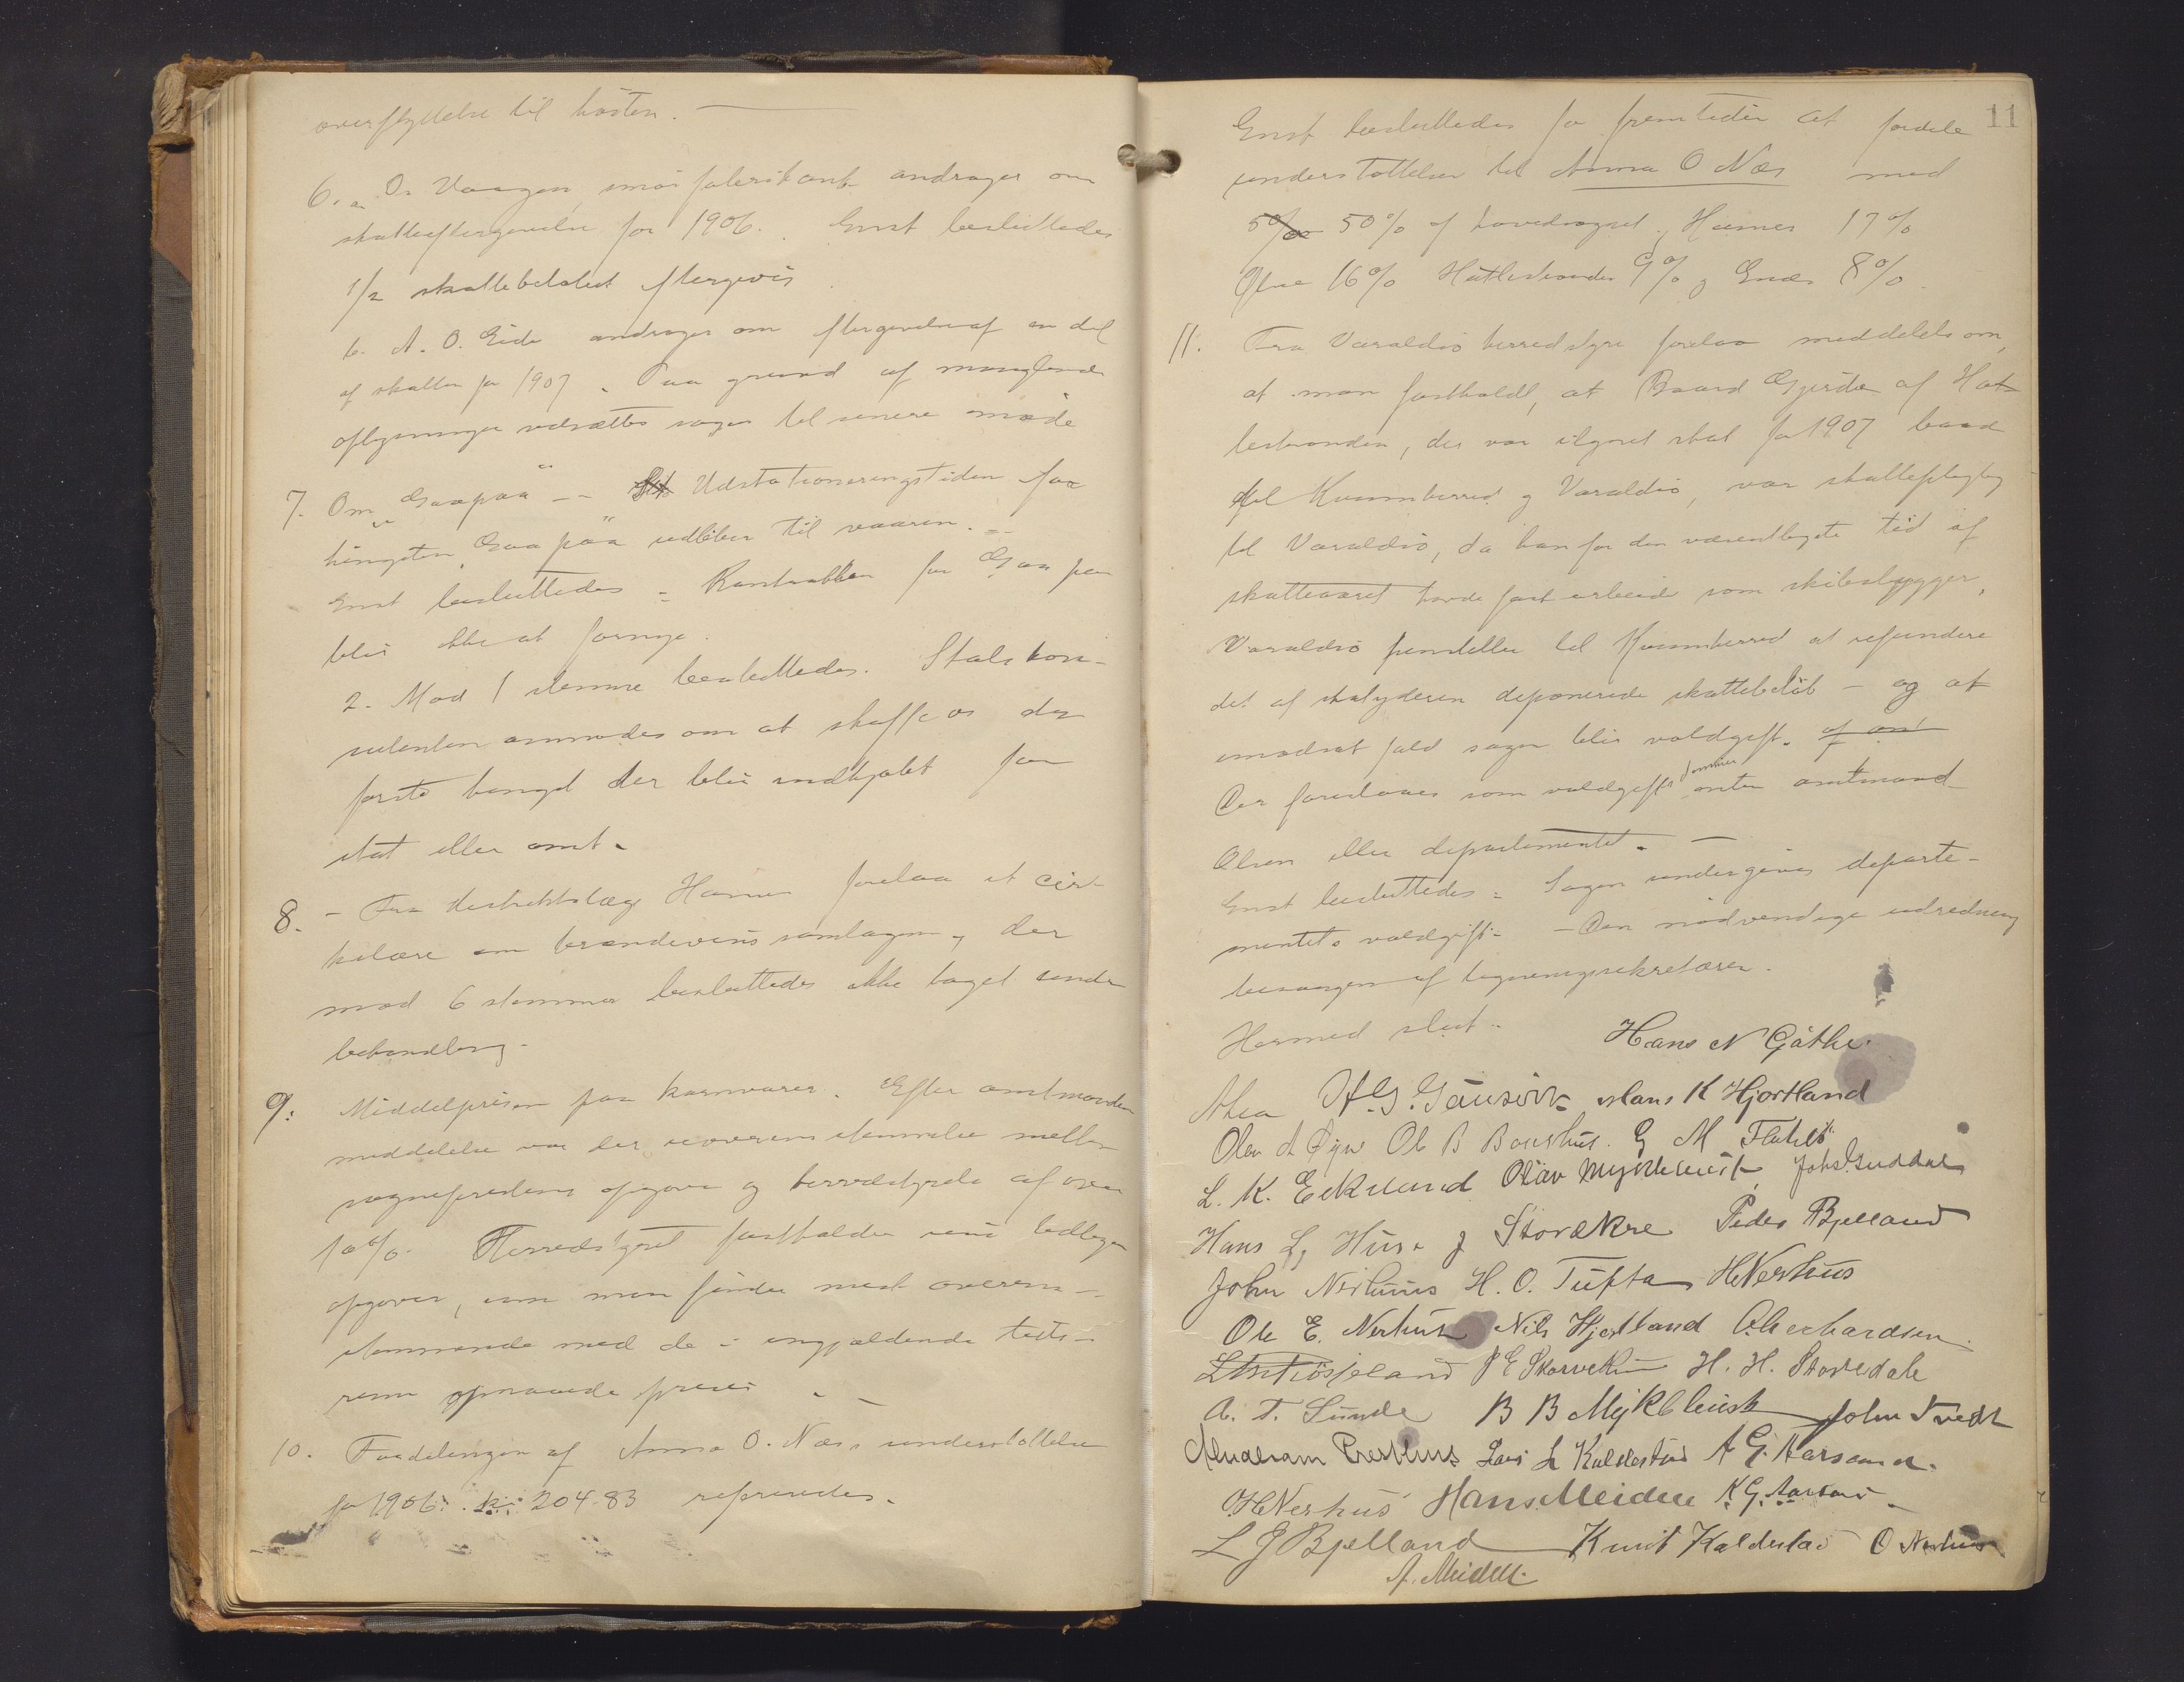 overflyttelse til hösten.
6. a. O. Vaagen, smörfabrikant andrager om
skatteeftergivelse for 1906. Enst besluttedes
1/2 skattebelöbet eftergives
b. A. O. Eide andrager om eftergivelse af en del
af skatten for 1907. Paa grund af manglende
oplysninger udsættes sagen til senere møde
7. Om "Gaapaa" -- Udstationeringstiden for
hingsten "Gaapaa" udlöber til vaaren. --
Enst besluttedes: Kontrakten for Gaapaa
blir ikke at fornye.
2. Mod 1 stemme besluttedes. Statskon-
sulenten anmodes om at skaffe os den
første hingst der blir indkjøbt for
stat eller amt.
8. - Fra distriktslæge Hamer forelaa et cir-
kulære om brændevinssamlagene, der
mod 6 stemmer besluttedes ikke taget under
behandling.
9. Middelprisen paa kornvarer. Efter amtmandens
meddelelse var der uoverensstemmelse mellem
sogneprestens opgave og herredstyrets af over
10 %. Herredstyret fastholder sine tidligere
opgaver, som man finder mest overens-
stemmende med de i omgjældende tids-
rum opnaaede priser. -
10. Fordelingen af Anna O. Næs's understøttelse
for 1906: kr. 204.83 refereredes.
11
Enst besluttedes for fremtiden at fordele
understøttelsen til Anna O Næs med
50% af hovedsognet, Hamer 17%
Ölve 16% Hatlestranden 9% og Enæs 8%.
11. Fra Varaldsö herredstyre forelaa meddelelse om,
at man fastholdt, at Baard Gjerde af Hat-
lestranden, der var ilignet skat for 1907 baade
til Kvinnherred og Varaldsö, var skattepligtig
til Varaldsö, da han for den væsentligste tid af
skatteaaret havde fast arbeide som skibsbygger.
Varaldsö fremstiller til Kvinnherred at refundere
det af skatyderen deponerede skattebelöb - og at
imodsat fald sagen blir voldgift. af amt
Der foreslaaes som voldgiftsdommer enten amtmand
Olsen eller departementet. -
Enst besluttedes: Sagen undergives departe-
mentets voldgift. - Den nödvendige udredning
besørges af ligningssekretæren.
Hermed slut. Hans N Gäthe.
H. G. Gausvik Hans K Hjortland
Olav A Øye Ole B Baushus G M Flatebö
L. K. Eikeland Olav Myklebust Johs. Guddal
Hans L, Huse J Storækre Peder Bjelland
John Nerhuus H. O. Tufta H Nerhus
Ole E. Nerhus Nils Hjortland O. Gerhardsen.
J E Skorvethun H. H. Storledale
A. T. Sunde B B Myklebust John Tvedt
Abraham Presthus Lars L Kaldestad A G. Aarsand.
H Nerhus Hans Meidell K G. Aarsand
L J Bjelland Knut Kaldestad O Nerhus
A. Meidell.